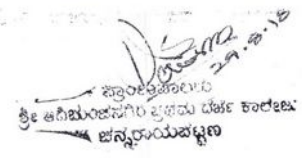 29.8.18
ಪ್ರಾಂಶುಪಾಲರು
ಶ್ರೀ ಆದಿಚುಂಚನಗಿರಿ ಪ್ರಥಮ ದರ್ಜೆ ಕಾಲೇಜು
ಚನ್ನರಾಯಪಟ್ಟಣ